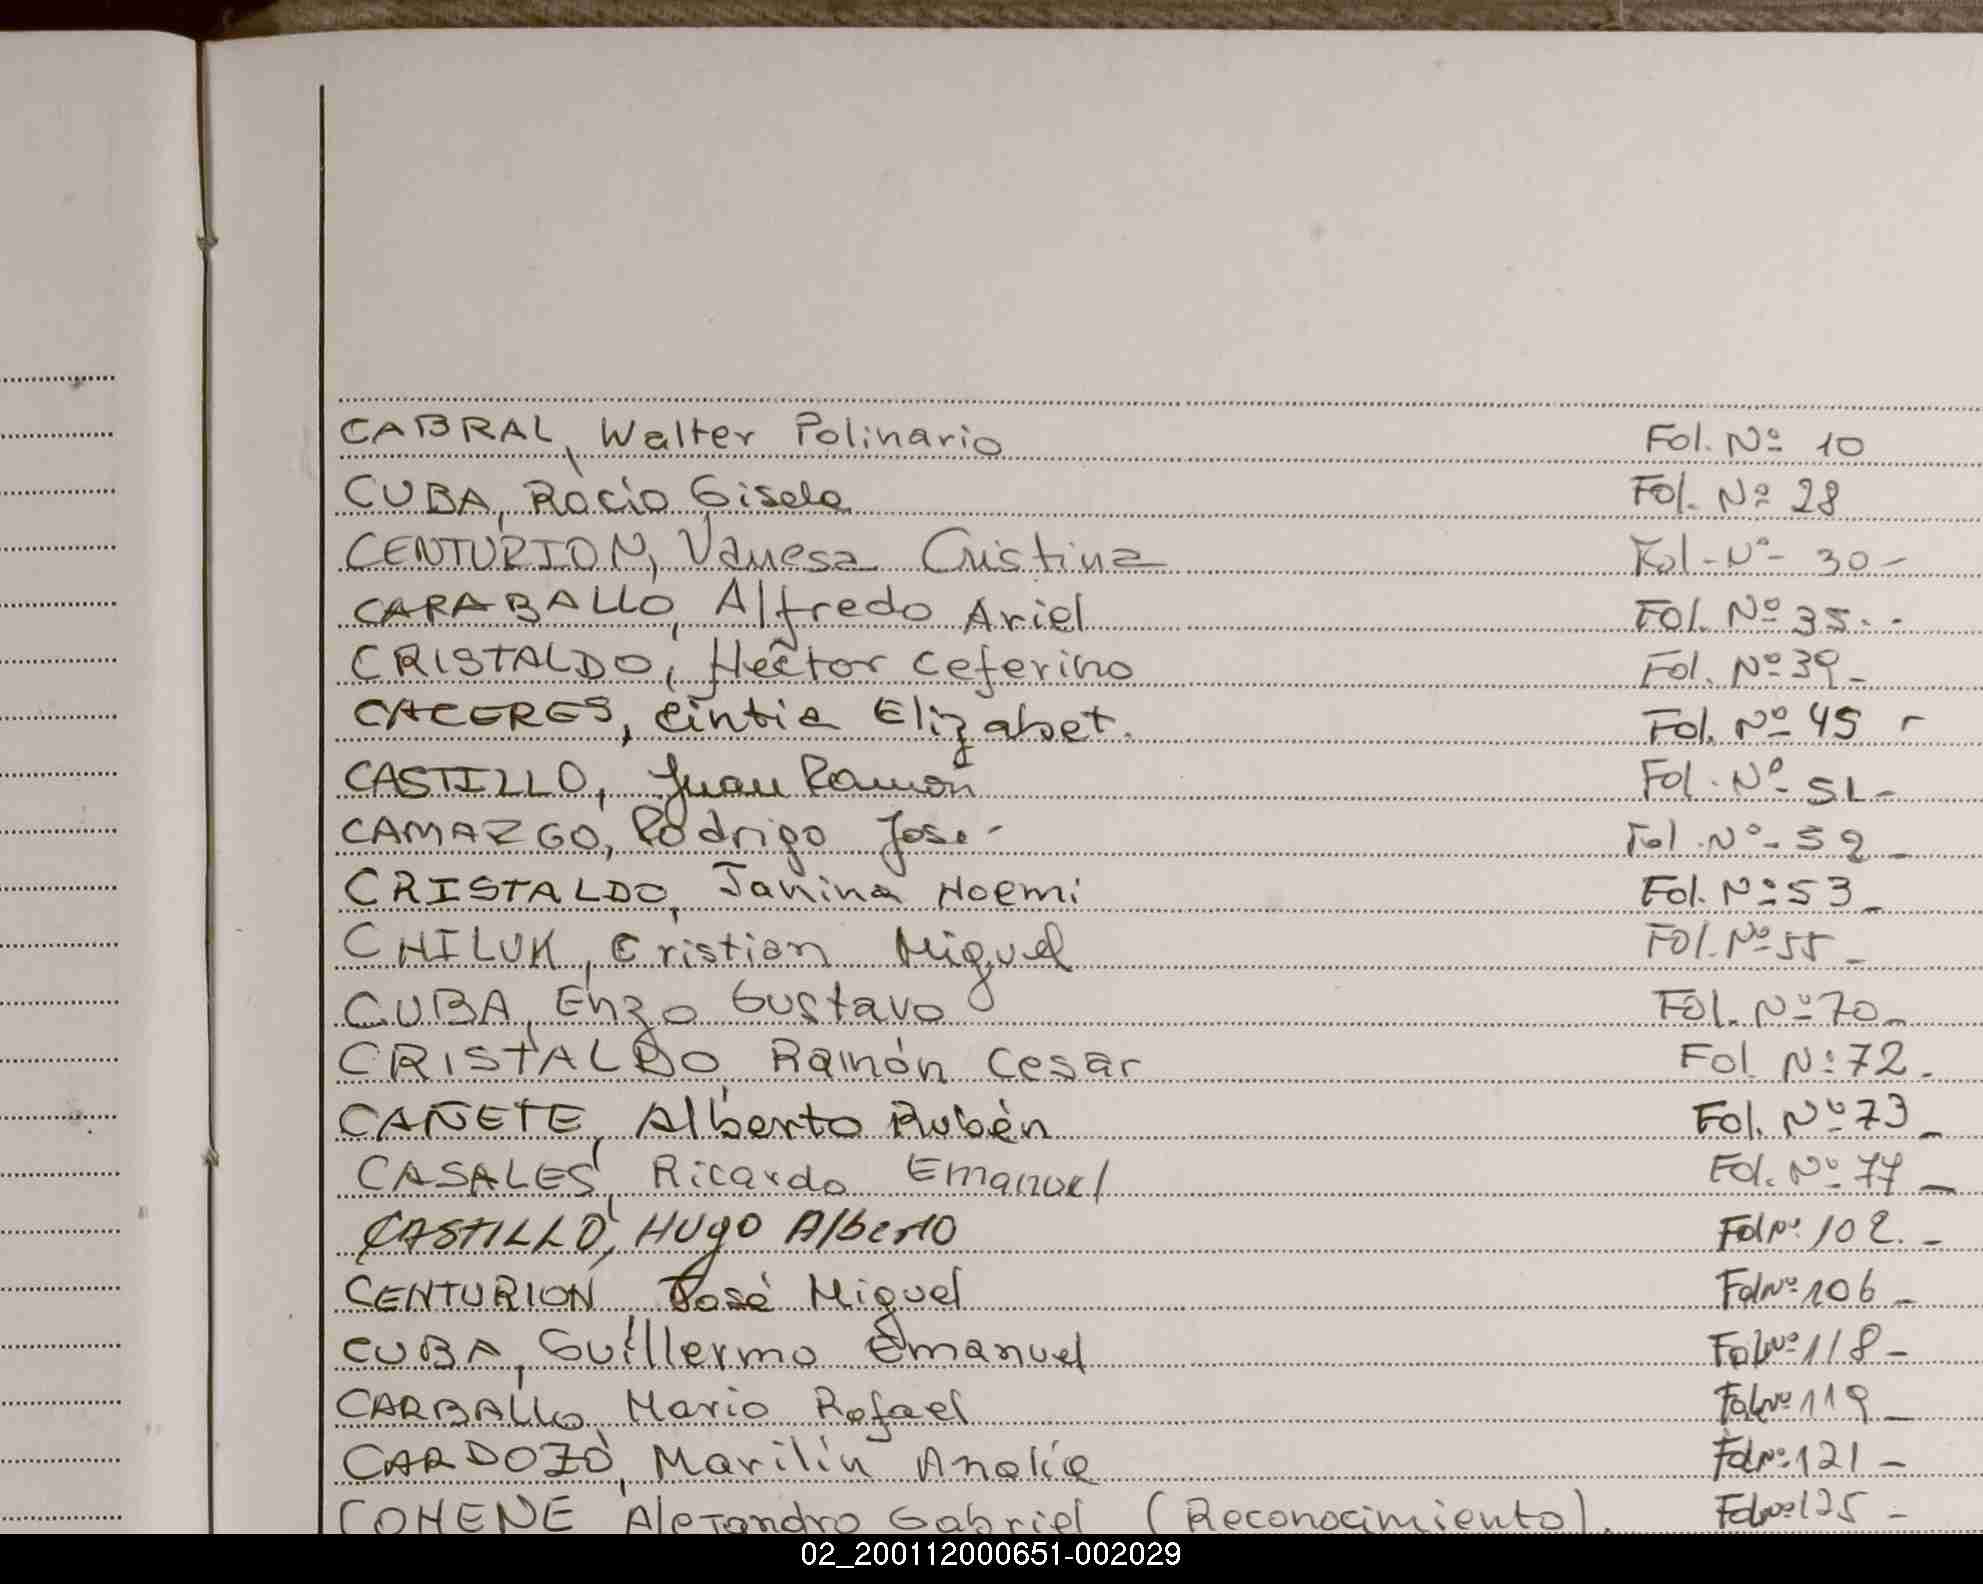 CABRAL, Walter Polinario Fol. Nº 10
CUBA, Rocio Gisela Fol. Nº 28
CENTURION, Vanesa Cristina Fol - Nº - 30 -
CARABALLO, Alfredo Ariel Fol. Nº 35. -
CRISTALDO, Hector Ceferino Fol. Nº 39 -
CACERES, Cintia Elizabet. Fol. Nº 45 -
CASTILLO, Juan Ramón Fol. Nº 51 -
CAMARGO, Rodrigo José - Fol. Nº - 52 -
CRISTALDO, Janina Noemi Fol. Nº 53 -
CHILUK, Cristian Miguel Fol. Nº 55 -
CUBA, Enzo Gustavo Fol. Nº 70 -
CRISTALDO, Ramón Cesar Fol Nº 72.
CAÑETE, Alberto Rubén Fol. Nº 73 -
CASALES, Ricardo Emanuel Fol. Nº 77 -
CASTILLO, Hugo Alberto Fol Nº 102. -
CENTURION, José Miguel Fol Nº 106 -
CUBA, Guillermo Emanuel Fol Nº 118 -
CARBALLO, Mario Rafael Fol Nº 119 -
CARDOZO, Marilín Analía Fol Nº 121 -
COHENE Alejandro Gabriel (Reconocimiento). Fol Nº 125 -
02_200112000651-002029